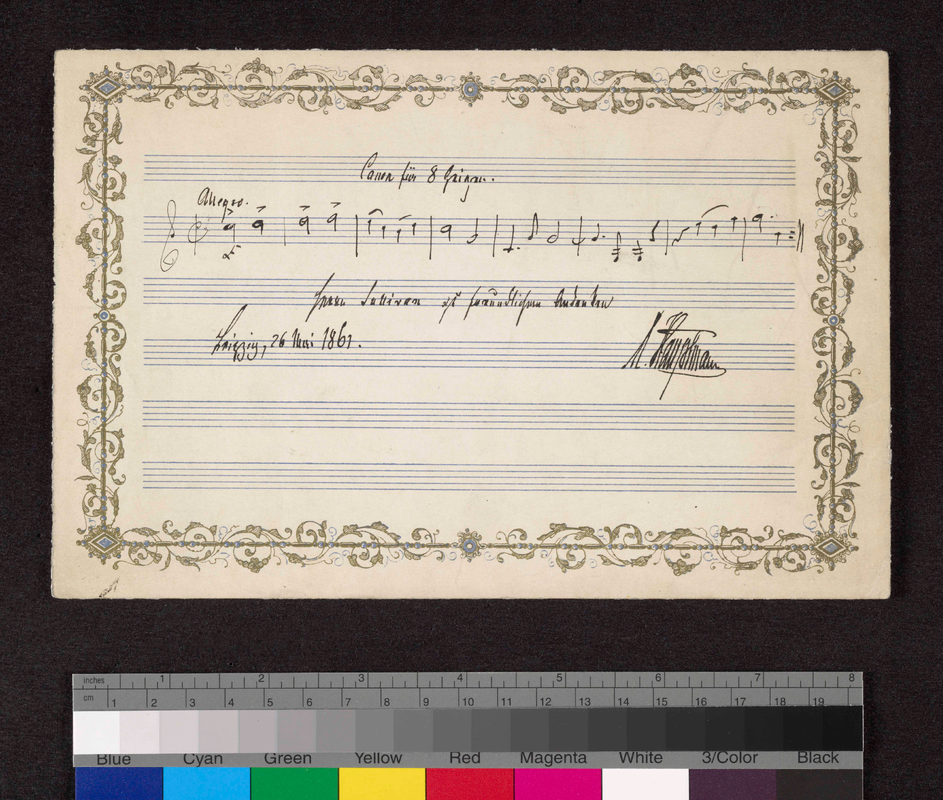 Canon für 8 Geigen.
Allegro.
Herrn Sullivan zu freundlichem Andenken
Leipzig, 26 Mai 1861.
M. Hauptmann
inches 1 2 3 4 5 6 7 8
cm 1 2 3 4 5 6 7 8 9 10 11 12 13 14 15 16 17 18 19
Blue Cyan Green Yellow Red Magenta White 3/Color Black